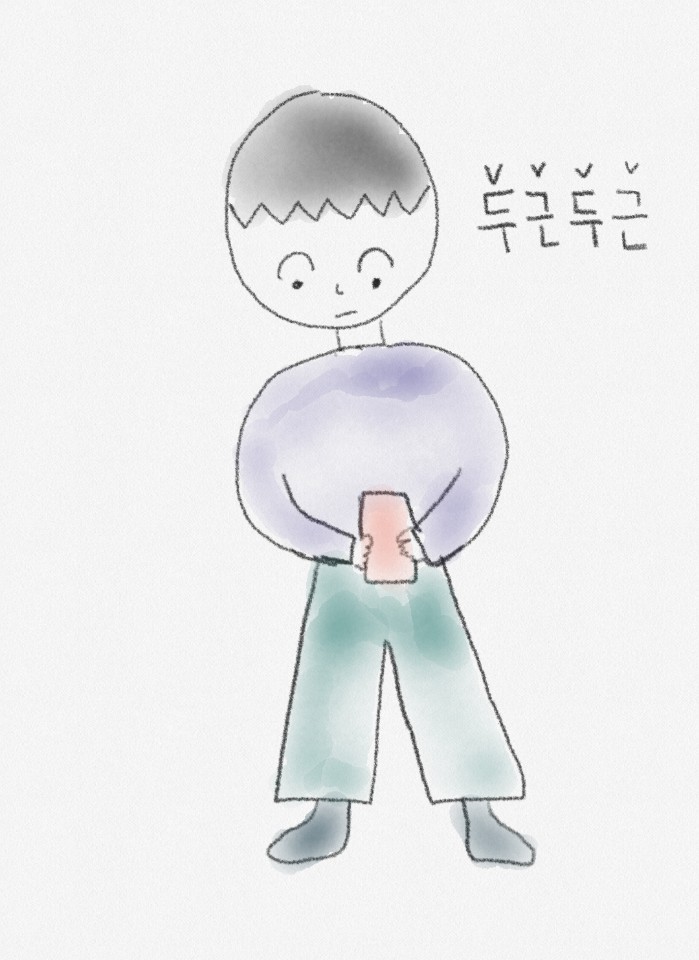 두근두근